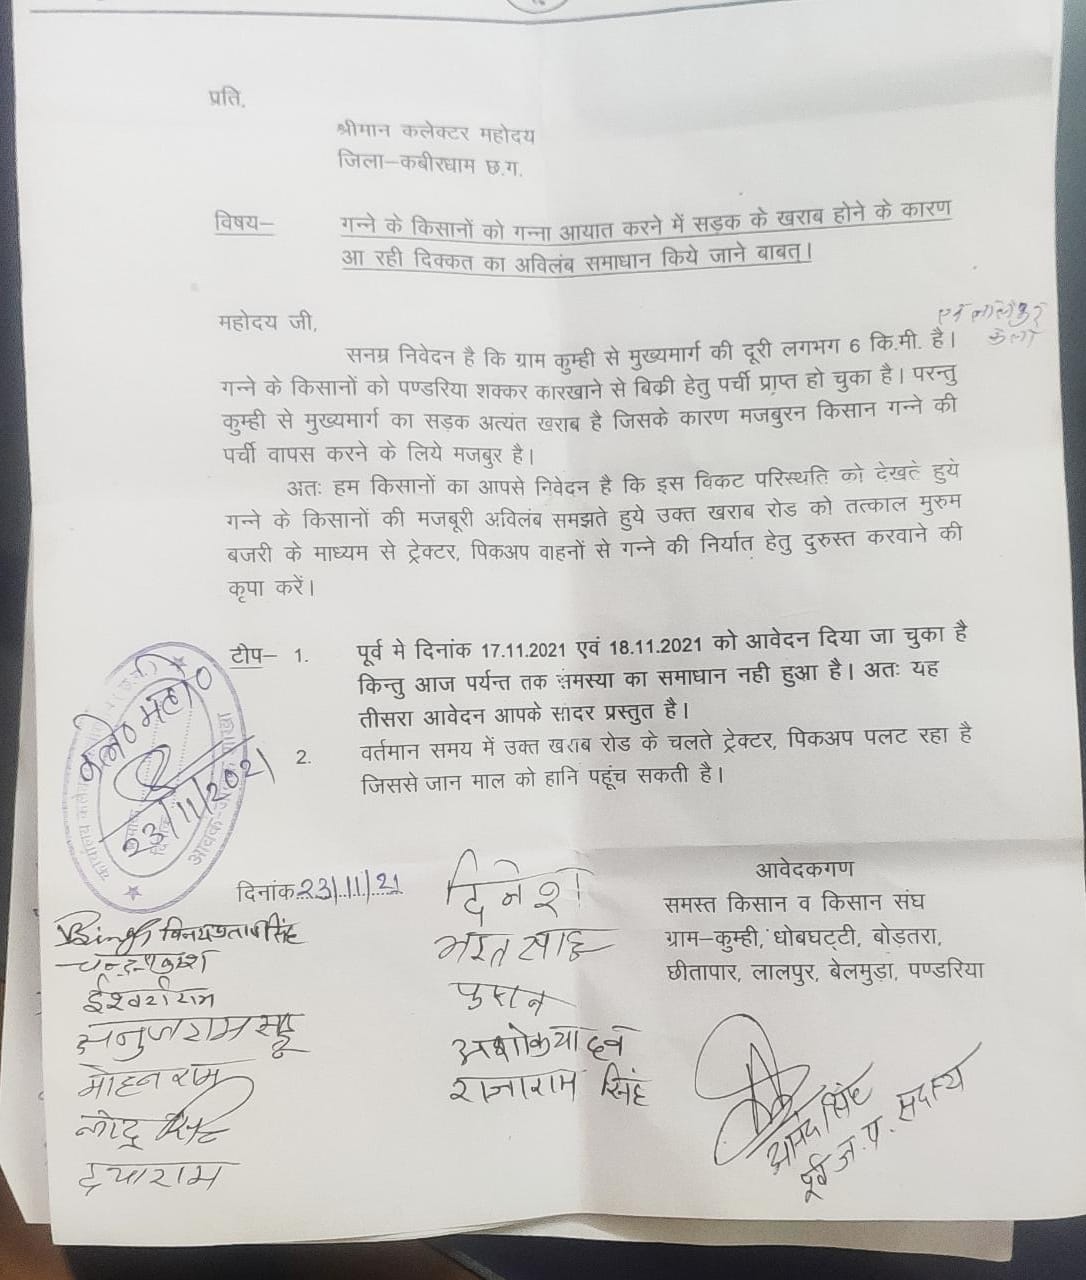 प्रति,
श्रीमान कलेक्टर महोदय
जिला–कबीरधाम छ.ग.
विषय– गन्ने के किसानों को गन्ना आयात करने में सड़क के खराब होने के कारण
आ रही दिक्कत का अविलंब समाधान किये जाने बाबत्।
महोदय जी,
सनम्र निवेदन है कि ग्राम कुम्ही से मुख्यमार्ग की दूरी लगभग 6 कि.मी. है।
गन्ने के किसानों को पण्डरिया शक्कर कारखाने से बिक्री हेतु पर्ची प्राप्त हो चुका है। परन्तु
कुम्ही से मुख्यमार्ग का सड़क अत्यंत खराब है जिसके कारण मजबुरन किसान गन्ने की
पर्ची वापस करने के लिये मजबुर है।
अतः हम किसानों का आपसे निवेदन है कि इस विकट परिस्थति को देखते हुये
गन्ने के किसानों की मजबूरी अविलंब समझते हुये उक्त खराब रोड को तत्काल मुरुम
बजरी के माध्यम से ट्रेक्टर, पिकअप वाहनों से गन्ने की निर्यात हेतु दुरुस्त करवाने की
कृपा करें।
टीप– 1. पूर्व मे दिनांक 17.11.2021 एवं 18.11.2021 को आवेदन दिया जा चुका है
किन्तु आज पर्यन्त तक समस्या का समाधान नही हुआ है। अतः यह
तीसरा आवेदन आपके सादर प्रस्तुत है।
2. वर्तमान समय में उक्त खराब रोड के चलते ट्रेक्टर, पिकअप पलट रहा है
जिससे जान माल को हानि पहूंच सकती है।
23/11/2021
दिनांक 23/11/21
आवेदकगण
समस्त किसान व किसान संघ
ग्राम–कुम्ही, धोबघट्टी, बोड़तरा,
छीतापार, लालपुर, बेलमुड़ा, पण्डरिया
दिनेश
भरत साहू
अशोक यादव
राजाराम सिंह
विनयप्रताप सिंह
ईश्वरीराम
अनुजराम साहू
मोहन राम
दयाराम
पूर्व ज.प. सदस्य